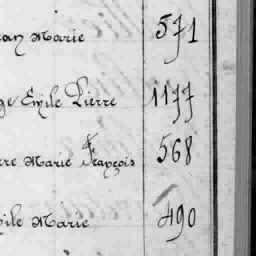 Marie 571
Emile Pierre 1177
Marie François 568
Marie 490